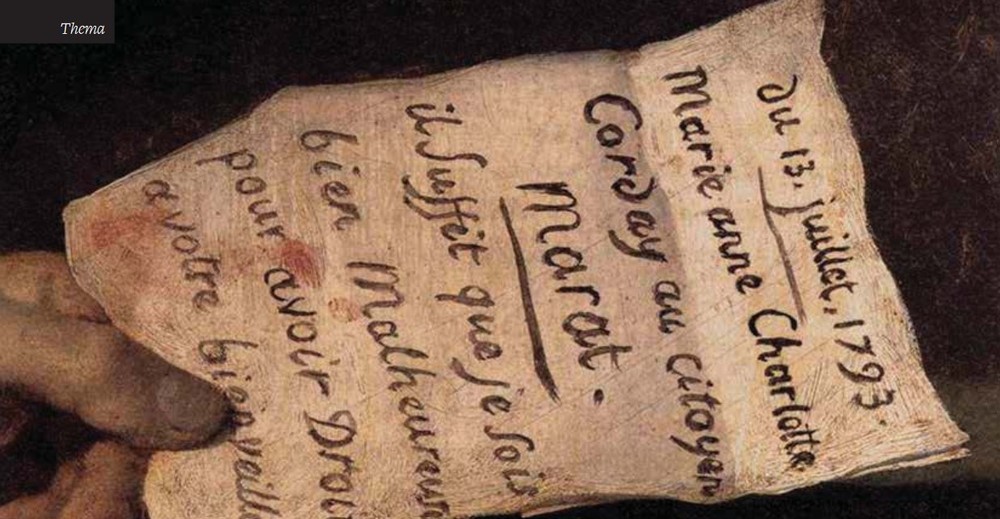 Thema
Du 13. juillet, 1793.
Marie anne Charlotte
Corday au citoyen
Marat.
il suffit que je sois
bien Malheureuse
pour avoir Droit
a votre bienveill